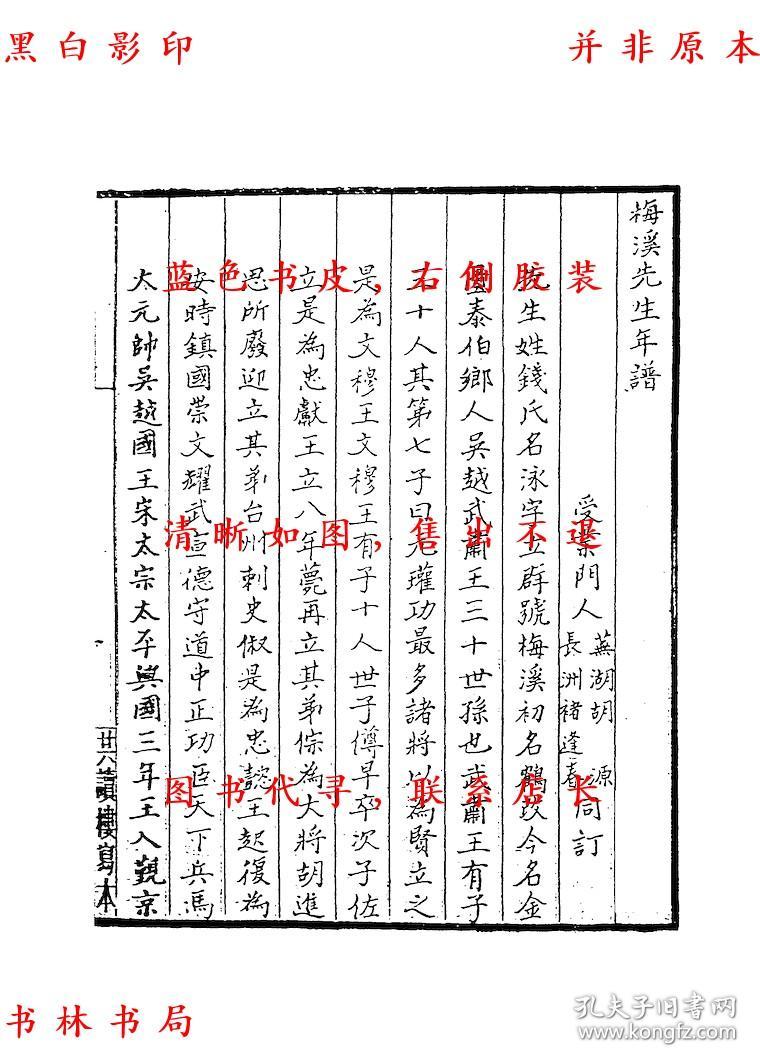 黑白影印
并非原本
梅溪先生年譜
受業門人
蕪湖胡源
長洲褚逢春
同訂
先生姓錢氏名泳字立群號梅溪初名鶴改今名金
匱泰伯鄉人吳越武肅王三十世孫也武肅王有子
三十人其第七子曰元瓘功最多諸將以為賢立之
是為文穆王文穆王有子十人世子傳早卒次子佐
立是為忠獻王立八年薨再立其弟倧為大將胡進
思所廢迎立其弟台州刺史俶是為忠懿王起復為
安時鎮國崇文耀武宣德守道中正功臣天下兵馬
大元帥吳越國王宋太宗太平興國三年王入覲京
寫本
蓝色书皮,右侧胶装
清晰如图,售出不退
图书代寻,联系店长
书林书局
孔夫子旧书网
www.kongfz.com